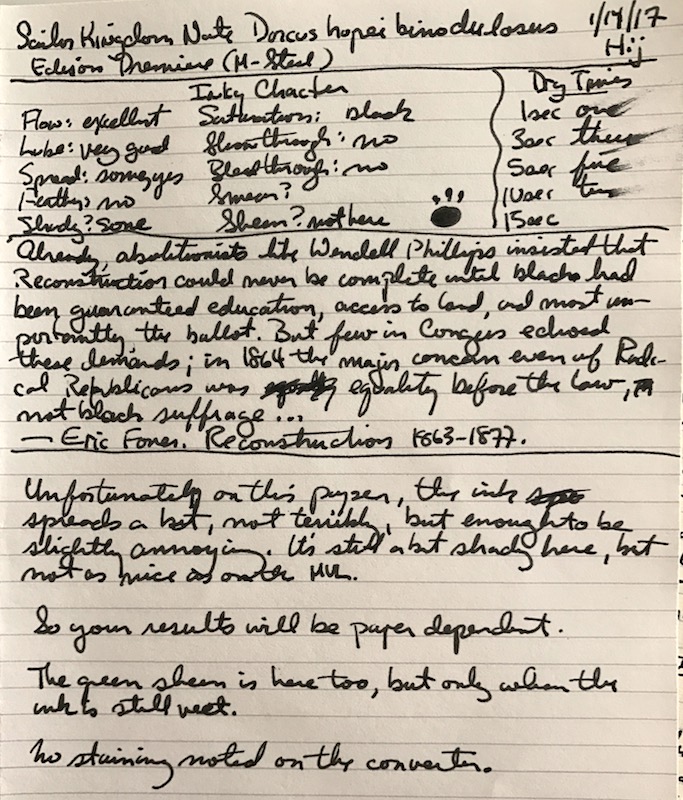 Sailor Kingdom Note Dorcus hopei binodulosus 1/14/17
Edison Premiere (M-Steel) Hij
Inky Chacter Dry Times
Flow: excellent Saturation: black 1sec one
Lube: very good Showthrough: no 3sec three
Spread: some, yes Bleedthrough: no 5sec five
Feather: no Smear? 10sec ten
Shady? some Sheen? not here 15sec
Already, abolitionists like Wendell Phillips insisted that
Reconstruction could never be complete until blacks had
been guaranteed education, access to land, and most im-
portantly the ballot. But few in Congress echoed
these demands; in 1864 the major concern even of Radi-
cal Republicans was equality before the law,
not black suffrage...
— Eric Foner. Reconstruction 1863-1877.
Unfortunately on this paper, the ink
spreads a bit, not terribly, but enough to be
slightly annoying. It's still a bit shady here, but
not as nice as on the MvL.
So your results will be paper dependent.
The green sheen is here too, but only when the
ink is still wet.
No staining noted on the converter.